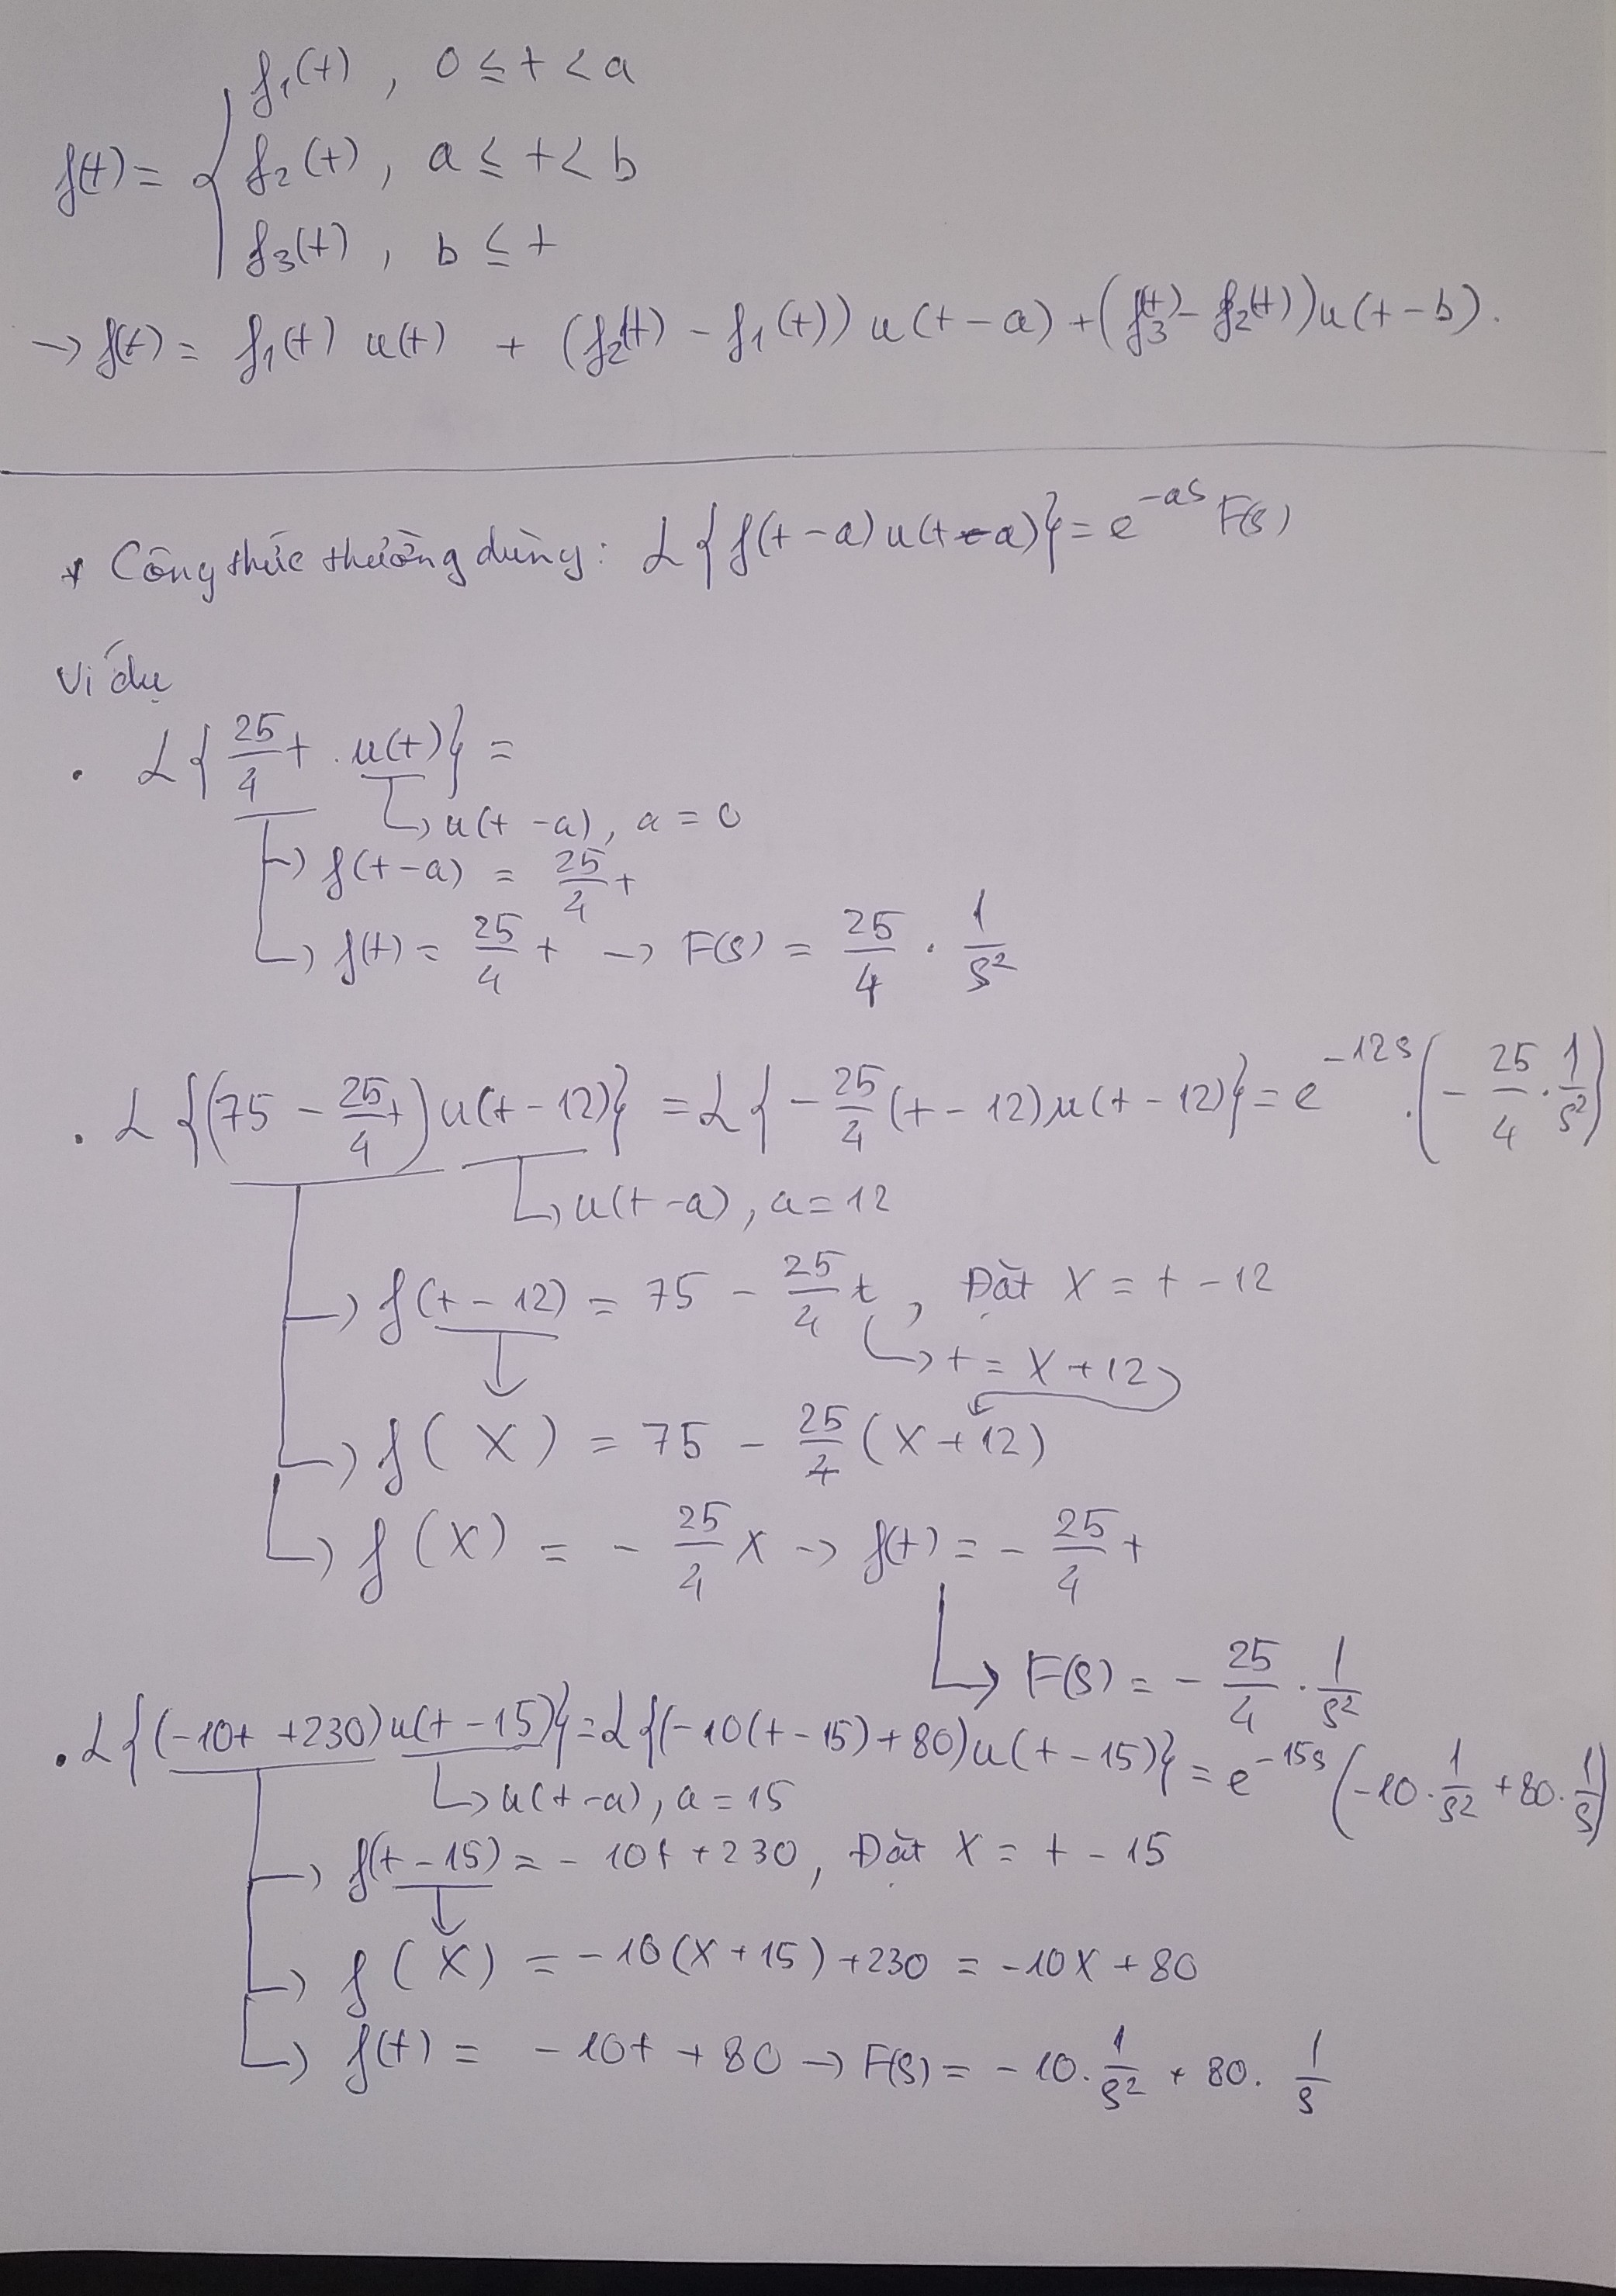 f(t) = { f₁(t) , 0 ≤ t < a
f₂(t) , a ≤ t < b
f₃(t) , b ≤ t
→ f(t) = f₁(t) u(t) + (f₂(t) - f₁(t)) u(t - a) + (f₃(t) - f₂(t)) u(t - b).
* Công thức thường dùng: L{f(t - a) u(t - a)} = e^{-as} F(s)
Ví dụ
• L{25/4 t . u(t)} =
↳ u(t - a), a = 0
↳ f(t - a) = 25/4 t
↳ f(t) = 25/4 t → F(s) = 25/4 . 1/s²
• L{(75 - 25/4 t) u(t - 12)} = L{-25/4 (t - 12) u(t - 12)} = e^{-12s} . (- 25/4 . 1/s²)
↳ u(t - a), a = 12
↳ f(t - 12) = 75 - 25/4 t , Đặt X = t - 12
↳ t = X + 12
↳ f(X) = 75 - 25/4 (X + 12)
↳ f(X) = - 25/4 X → f(t) = - 25/4 t
↳ F(s) = - 25/4 . 1/s²
• L{(-10t + 230) u(t - 15)} = L{(-10(t - 15) + 80) u(t - 15)} = e^{-15s} (-10 . 1/s² + 80 . 1/s)
↳ u(t - a), a = 15
↳ f(t - 15) = - 10t + 230, Đặt X = t - 15
↳ f(X) = -10(X + 15) + 230 = -10X + 80
↳ f(t) = - 10t + 80 → F(s) = - 10 . 1/s² + 80 . 1/s